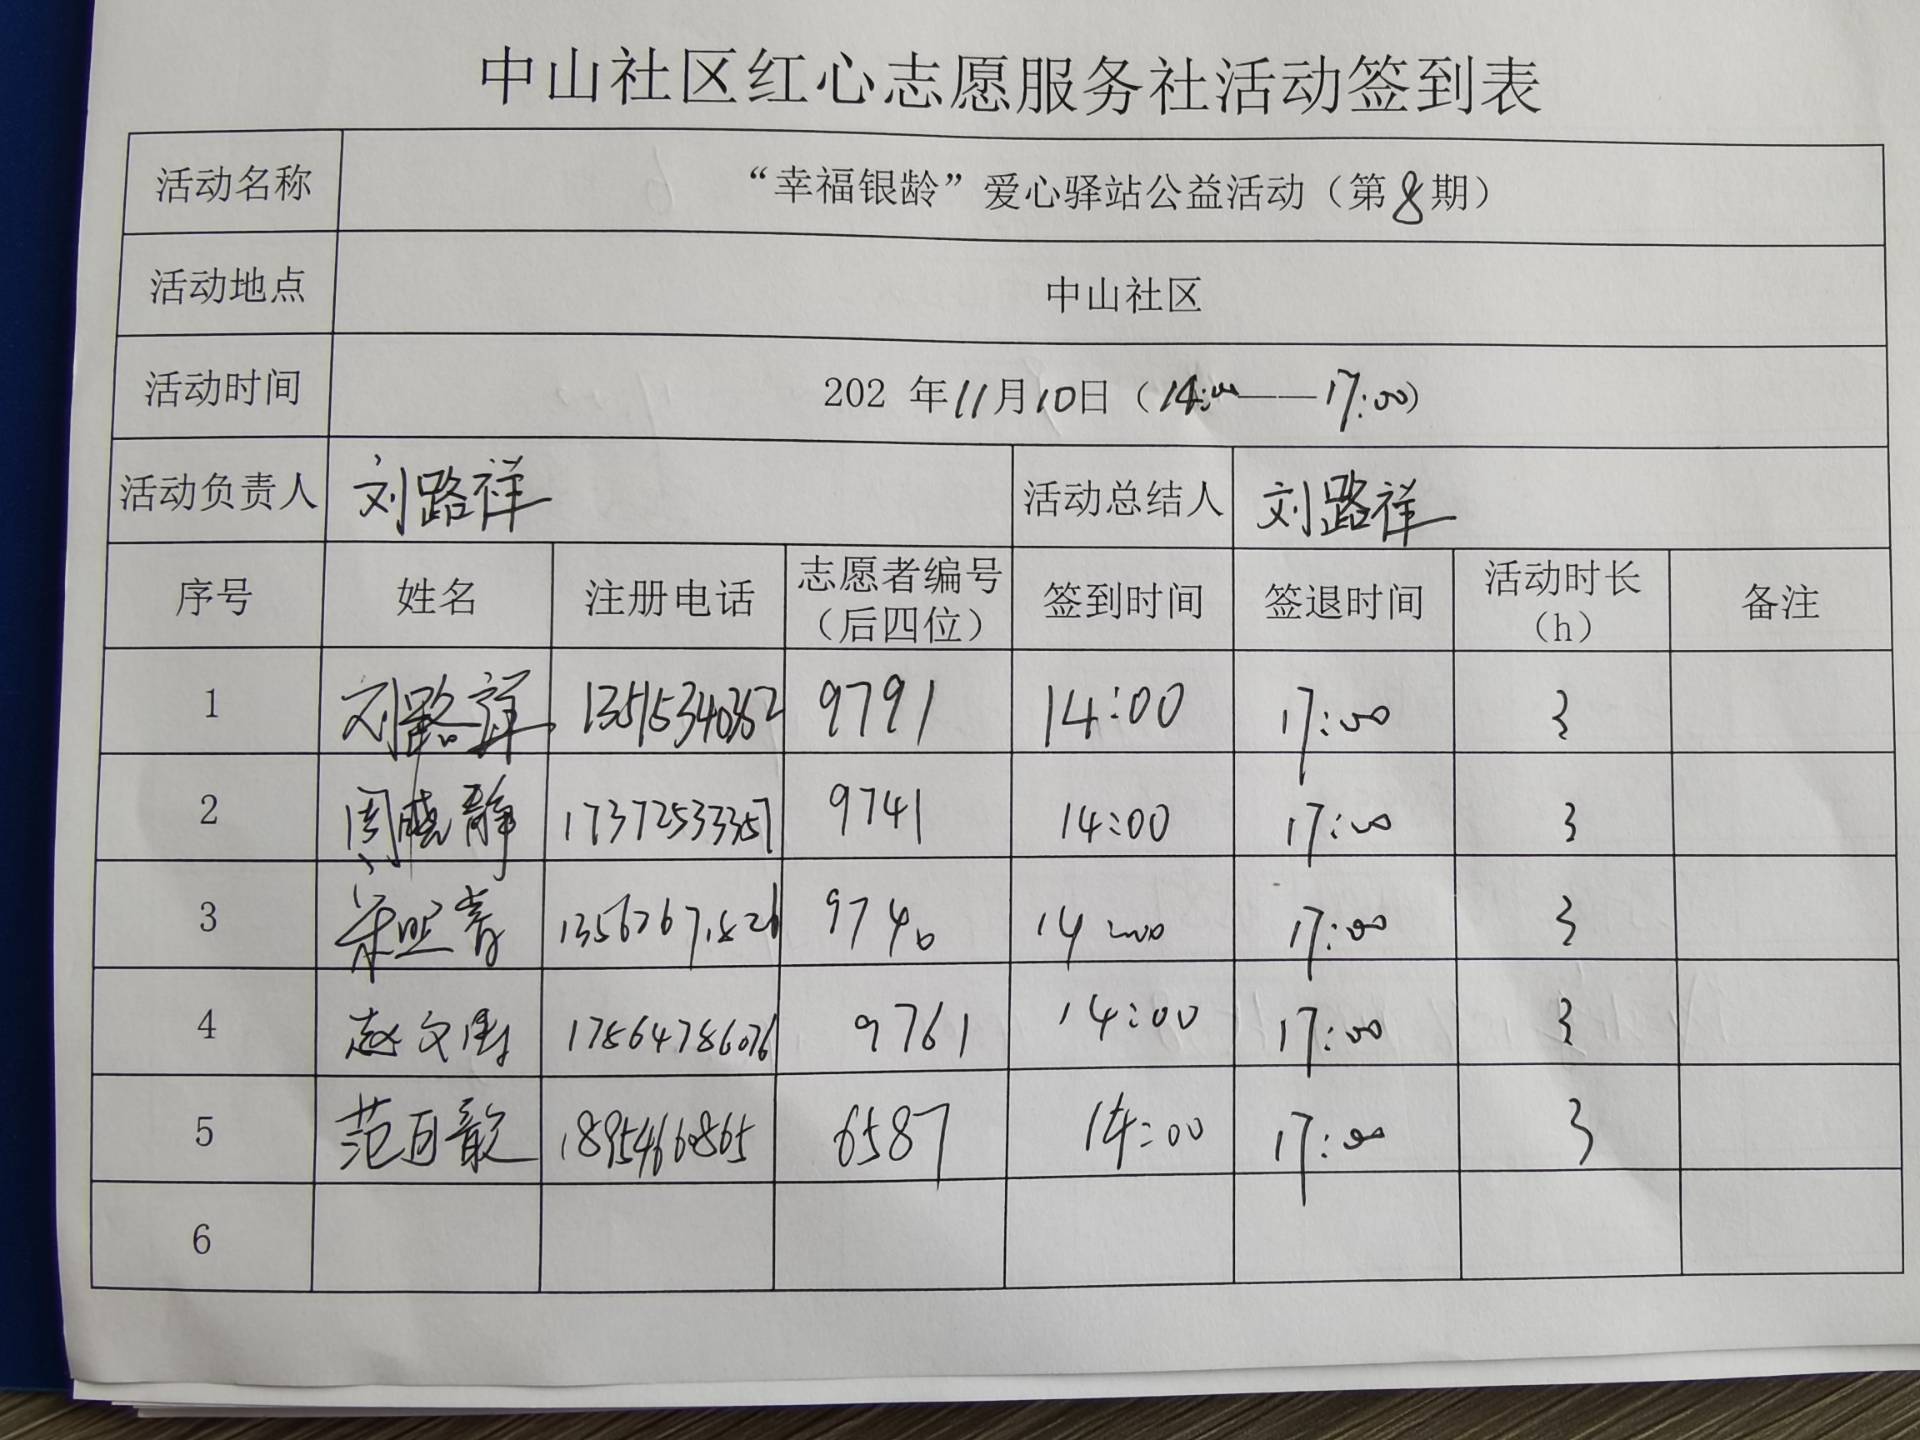 中山社区红心志愿服务社活动签到表
活动名称 “幸福银龄”爱心驿站公益活动（第8期）
活动地点 中山社区
活动时间 202 年11月10日（14:00——17:00）
活动负责人 刘路祥 活动总结人 刘路祥
序号 姓名 注册电话 志愿者编号（后四位） 签到时间 签退时间 活动时长（h） 备注
1 刘路祥 9791 14:00 17:00 3
2 周晓静 17372533357 9741 14:00 17:00 3
3 9740 14:00 17:00 3
4 赵文 17864786076 9761 14:00 17:00 3
5 范百歆 6587 14:00 17:00 3
6